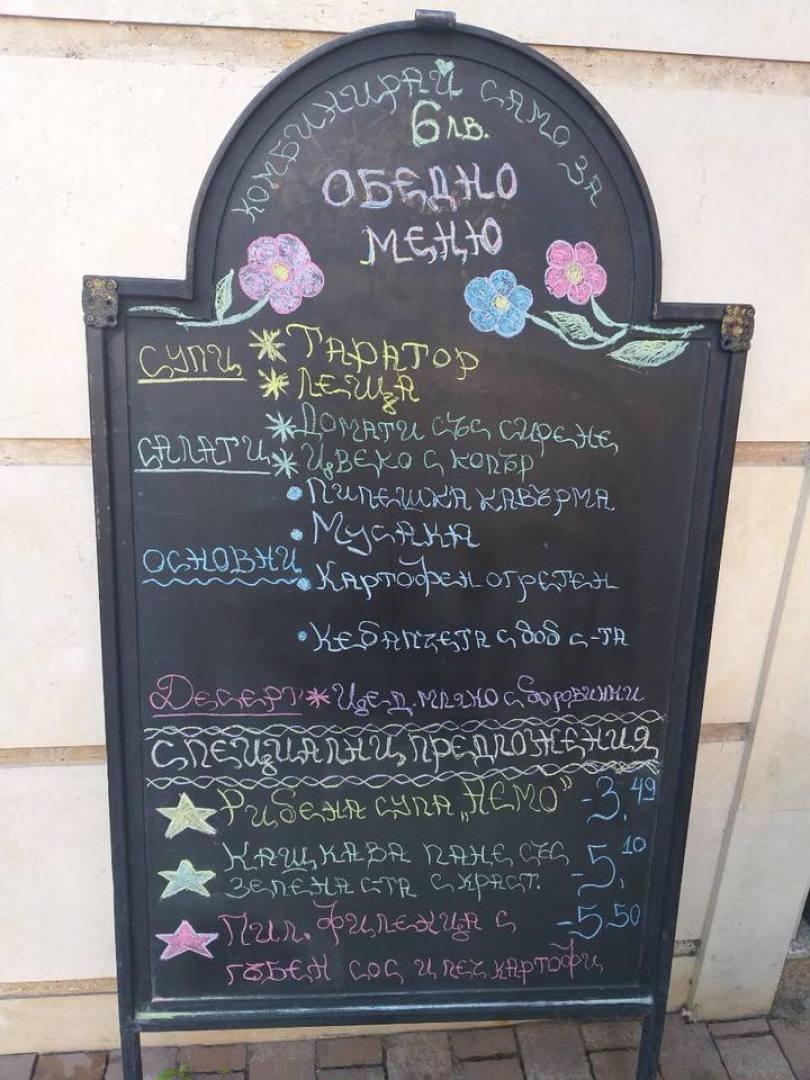 КОМБИНИРАЙ САМО ЗА
6лв.
ОБЕДНО
МЕНЮ
СУПИ * ТАРАТОР
* ЛЕЩА
САЛАТИ * ДОМАТИ СЪС СИРЕНЕ
* ЦВЕКО С КОПЪР
• ПИЛЕШКА КАВЪРМА
• МУСАКА
ОСНОВНИ • КАРТОФЕН ОГРЕТЕН
• КЕБАПЧЕТА С БОБ С-ТА
ДЕСЕРТ * ЦЕД. МЛЯКО С БОРОВИНКИ
СПЕЦИАЛНИ ПРЕДЛОЖЕНИЯ
РИБЕНА СУПА „НЕМО" -3,49
КАШКАВА ПАНЕ СЪС -5,10
ЗЕЛЕНА С-ТА С КРАСТ.
ПИЛ. ФИЛЕНЦА С -5.50
ГЪБЕН СОС И ПЕЧ КАРТОФИ